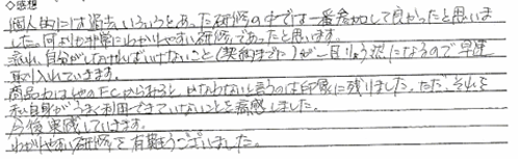 ◇感想
個人的には過去いろいろとあった研修の中では一番参加して良かったと思いま
した。何よりも非常にわかりやすい研修であったと思います。
流れ、自分がしなければいけないこと(契約までに)が一目りょう然になるので早速
取り入れています。
商品力は他のFCから かなわないと言うのは印象に残りました。ただ、それを
私自身がうまく利用できていないことを痛感しました。
今後実践していきます。
わかりやすい研修を有難うございました。